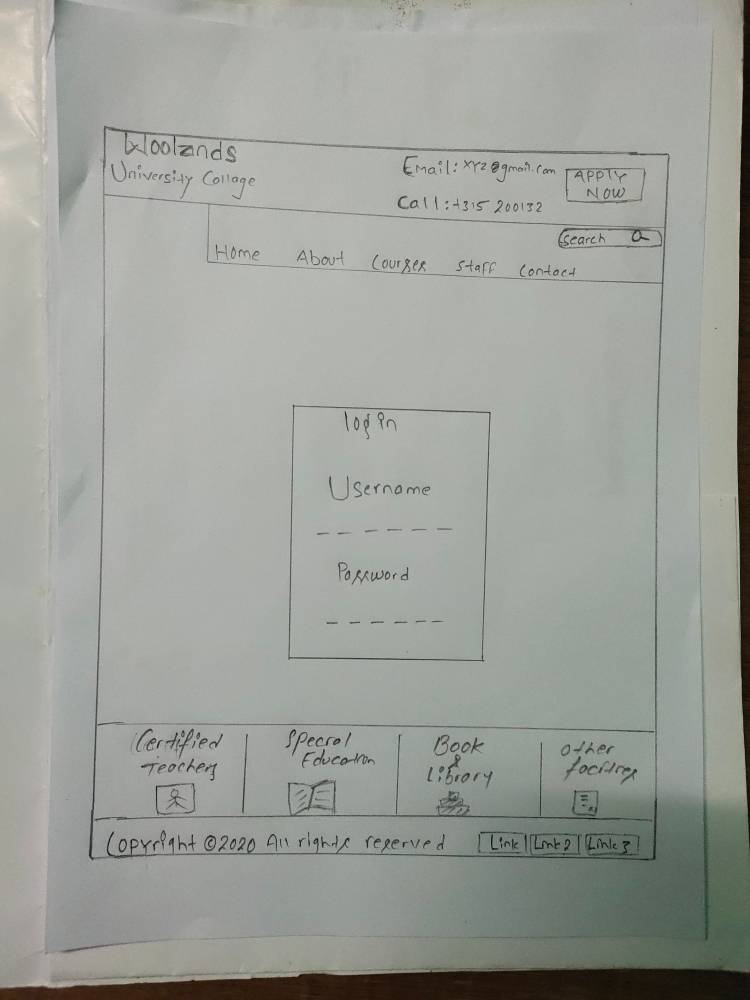 Woolands
University Collage
Email: XYZ@gmail.com
APPLY
NOW
Call:+315 200132
Search
Home About Courses Staff Contact
login
Username
Password
Certified
Teachers
Special
Education
Book
&
Library
Other
facilities
Copyright ©2020 All rights reserved
Link Link2 Link3